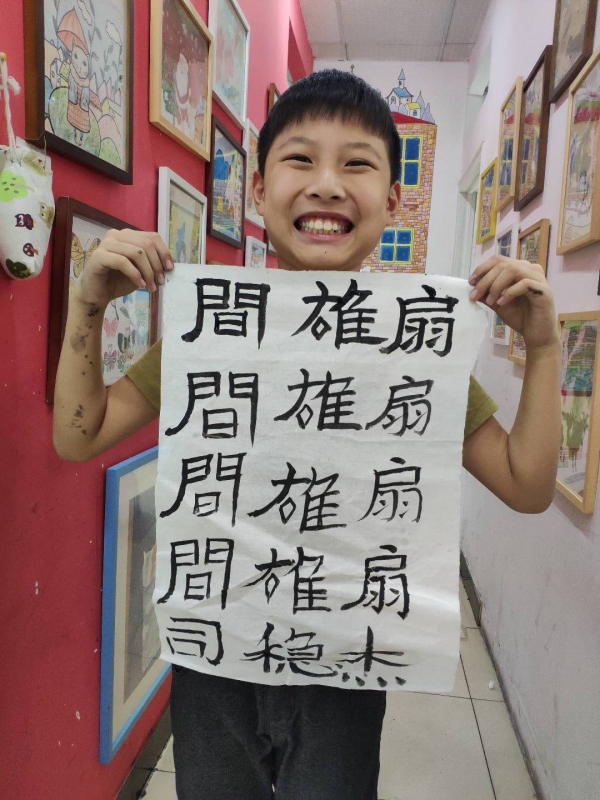 間 雄 扇
間 雄 扇
間 雄 扇
間 雄 扇
司 稳 杰